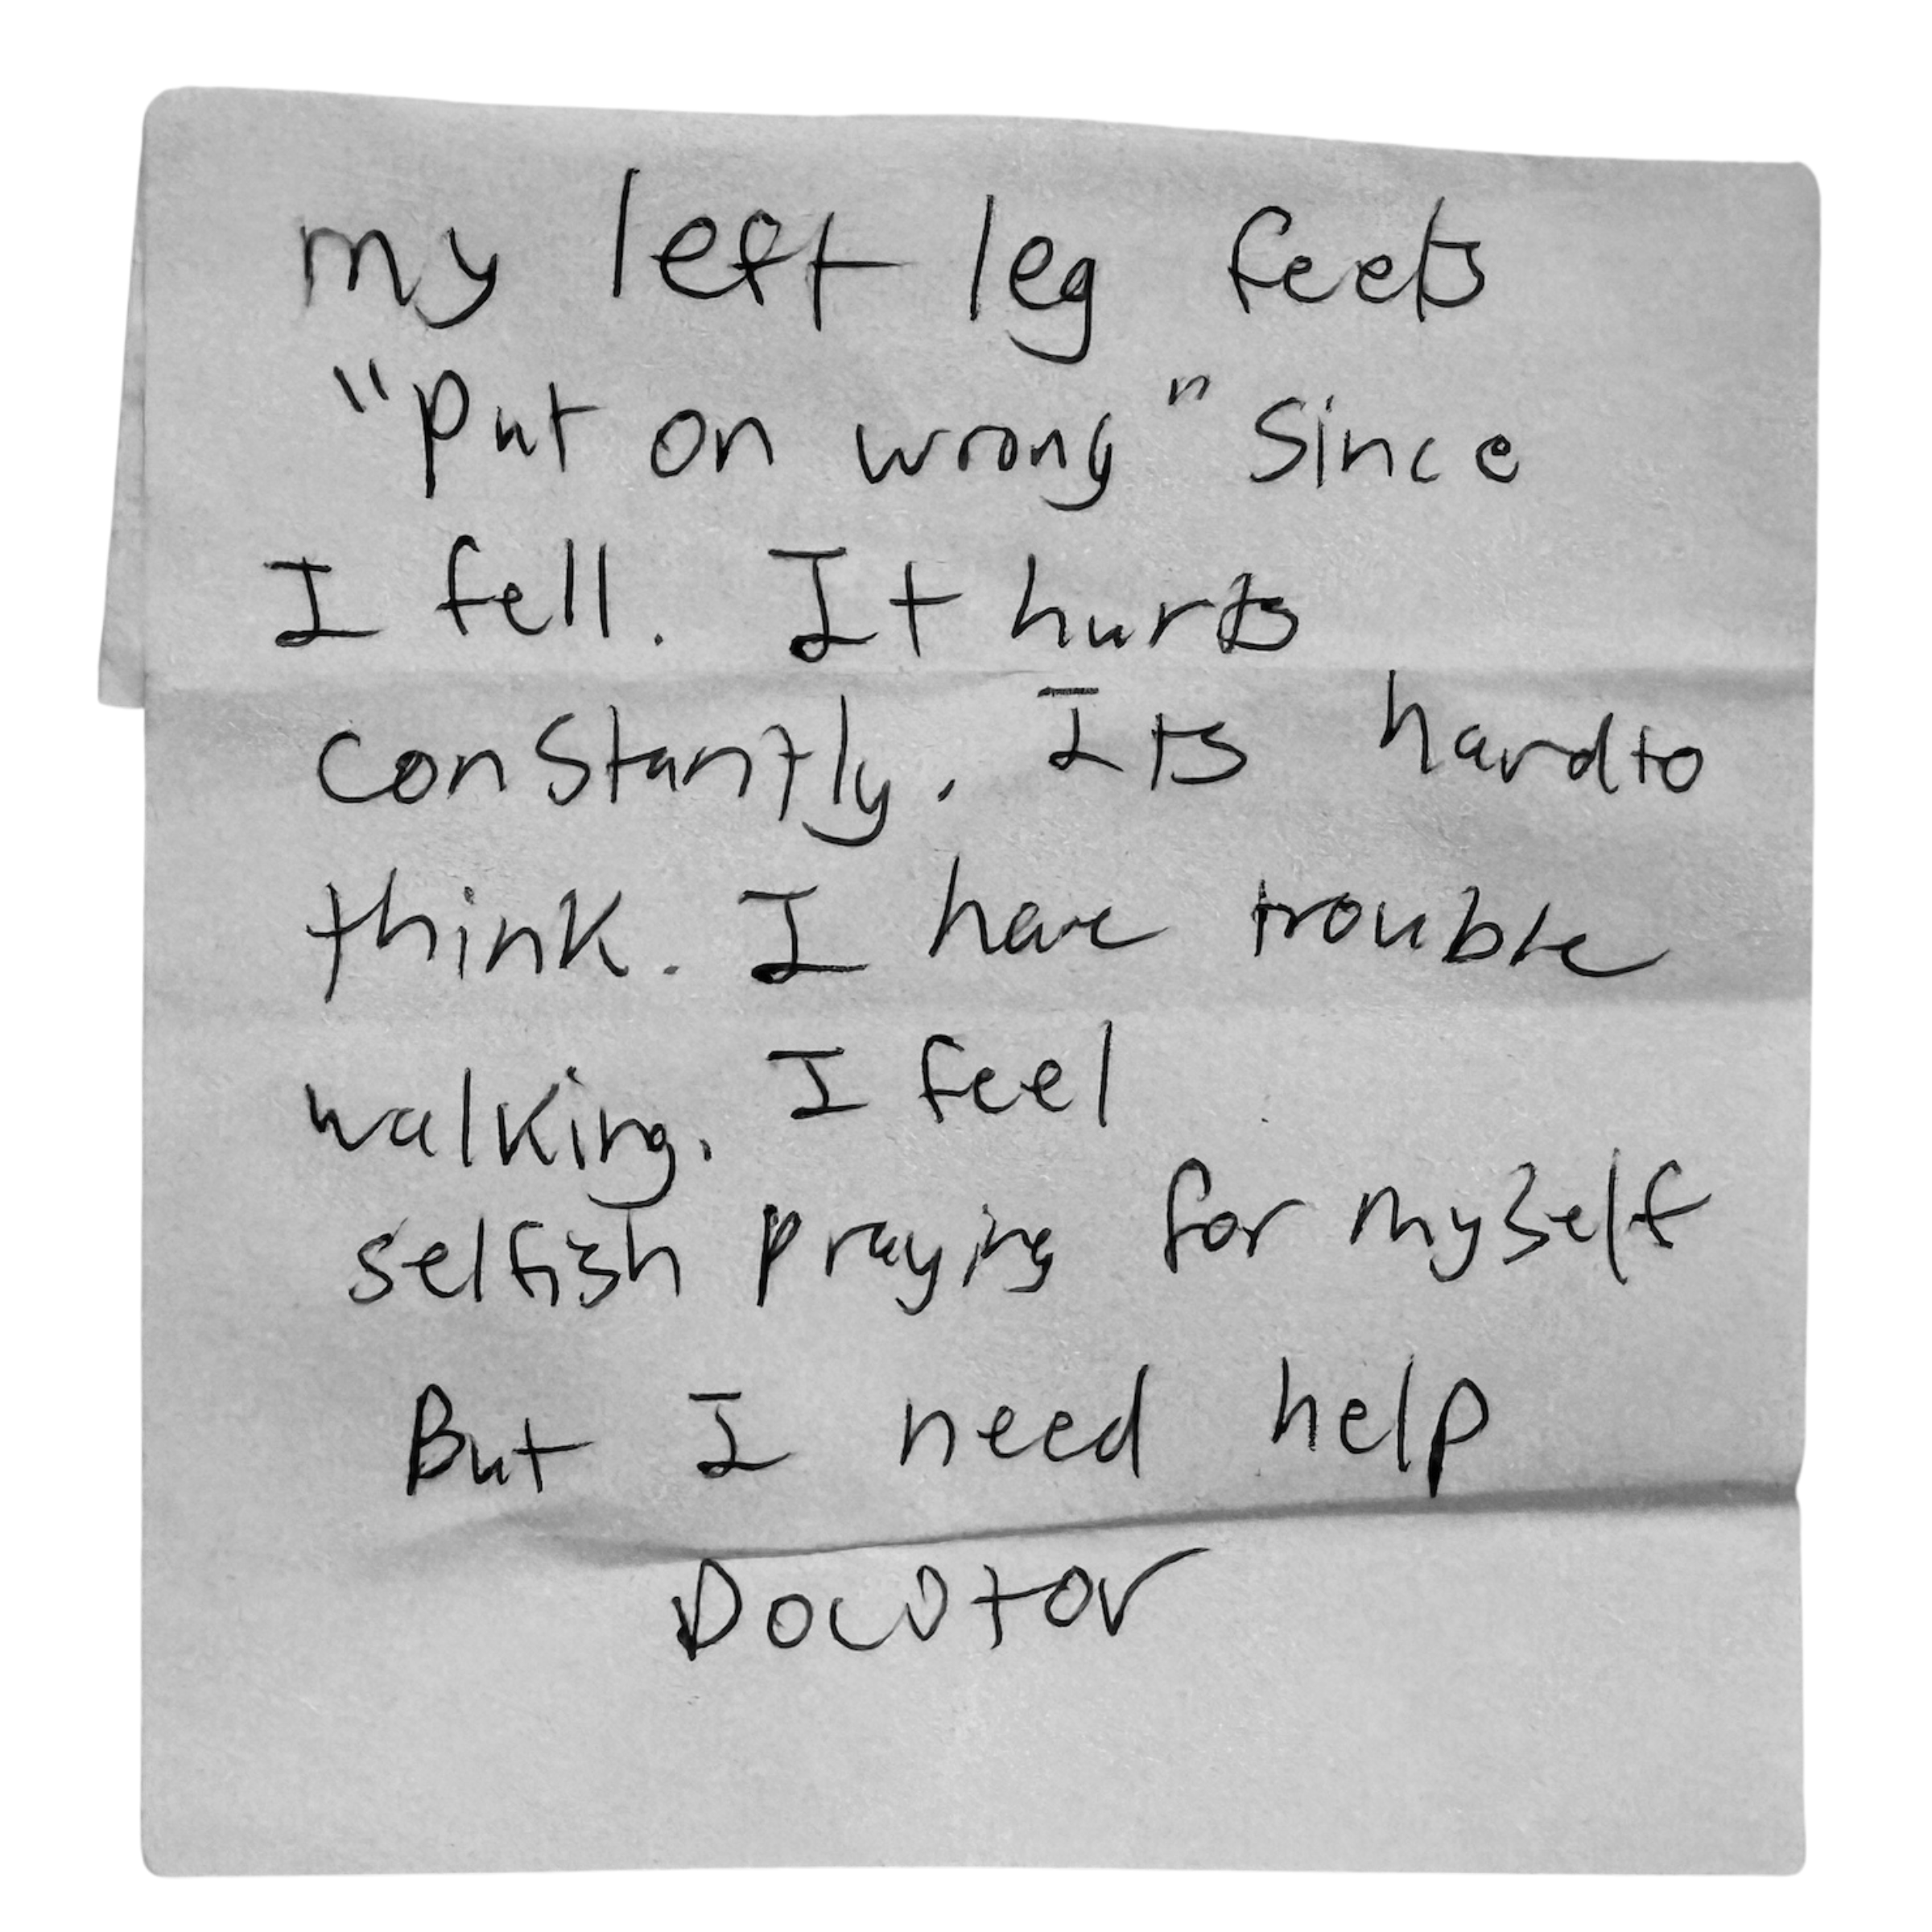 my left leg feels
"Put on wrong" since
I fell. It hurts
constantly. Its hard to
think. I have trouble
walking. I feel
selfish praying for myself
But I need help